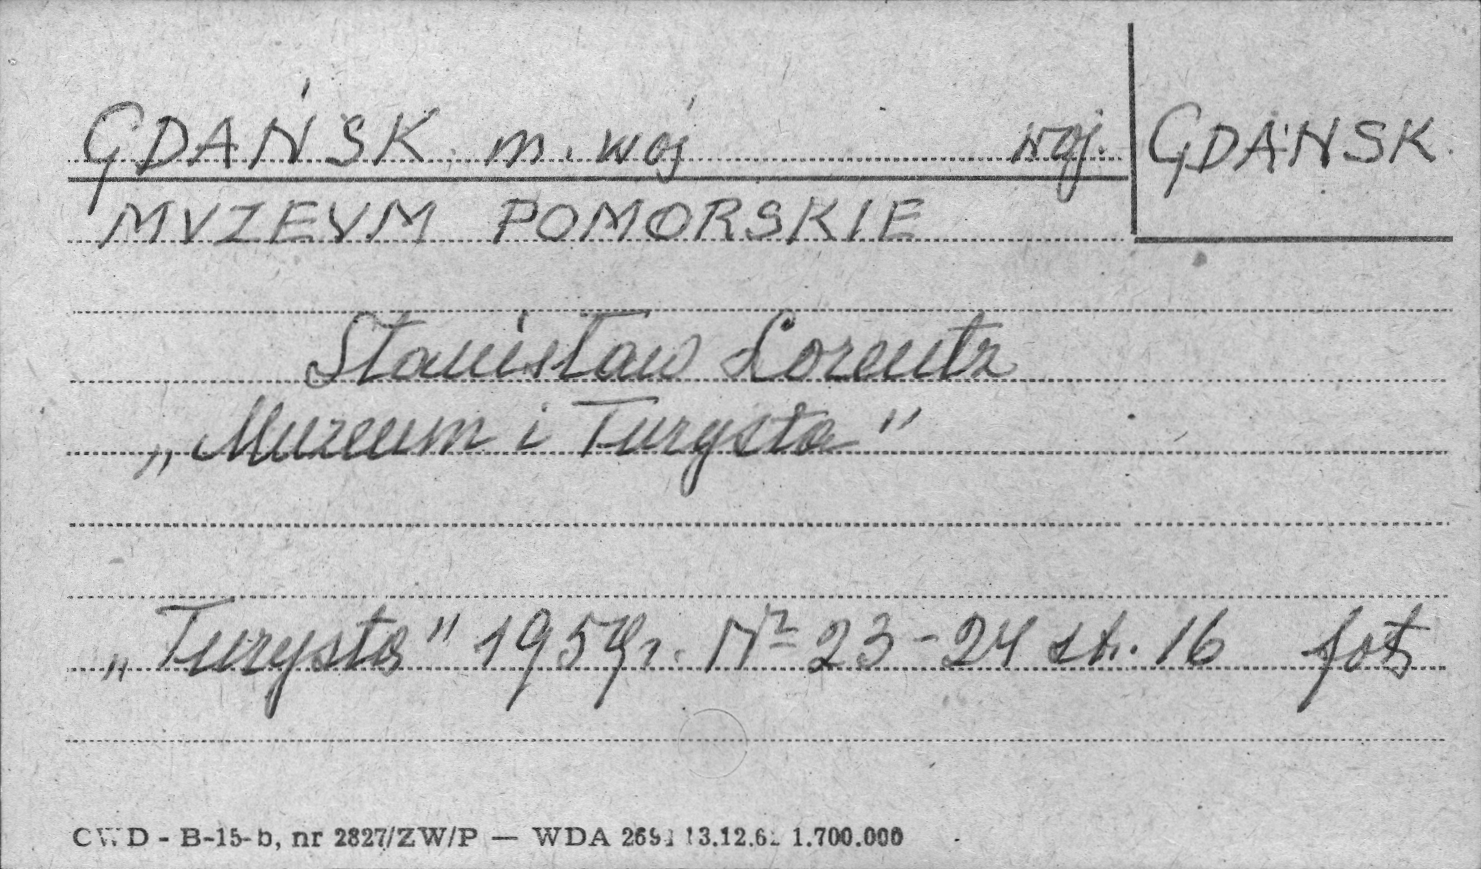 GDAŃSK m. woj woj. GDAŃSK.
MVZEVM POMORSKIE
Stanisław Lorentz
„Muzeum i Turysta”
„Turysta” r. Nr 23-24 str. 16 fot
CWD - B-15-b, nr 2827/ZW/P — WDA 1.700.000